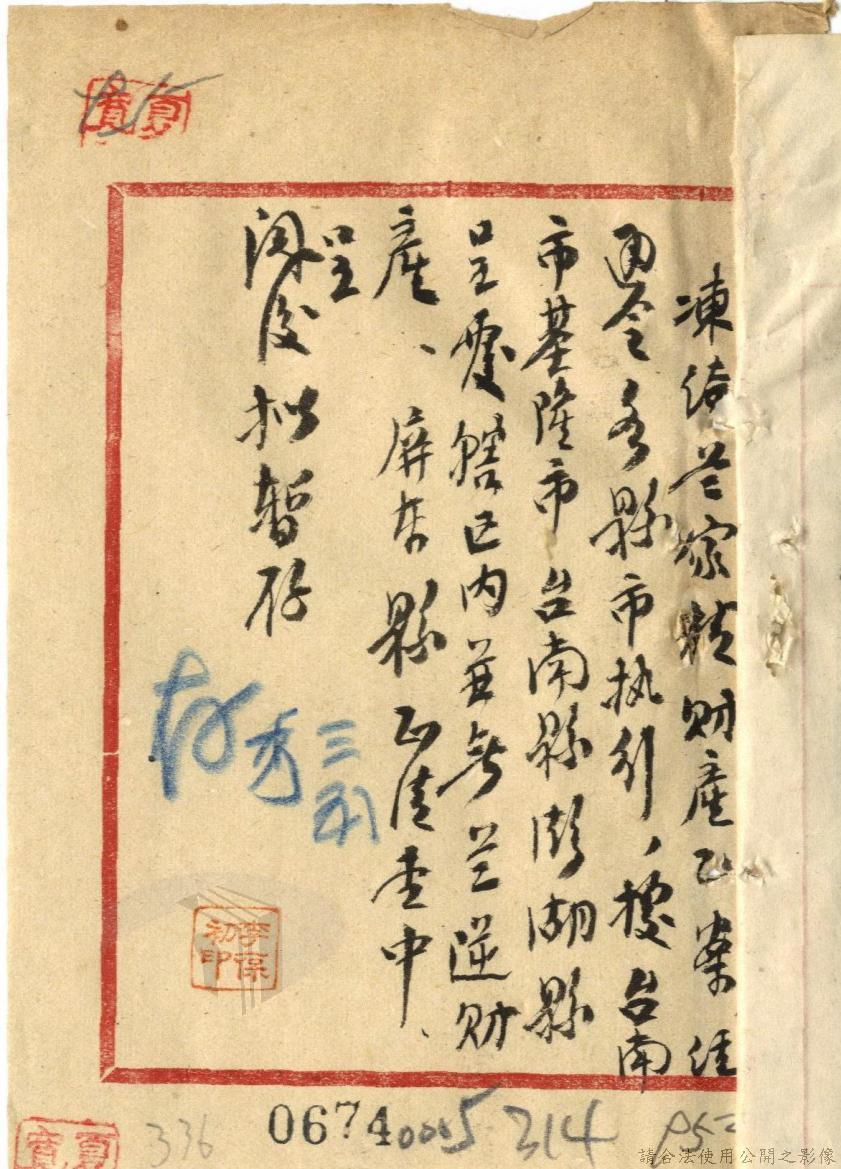 凍結兰家精財產乙案經
通令各縣市执行、據台南
市基隆市台南縣澎湖縣
呈覆轄区內並無兰逆財
產、屏東縣正清查中、
呈
閱後拟暫存
存
李保初印
0674
0005
314
336
請合法使用公開之影像